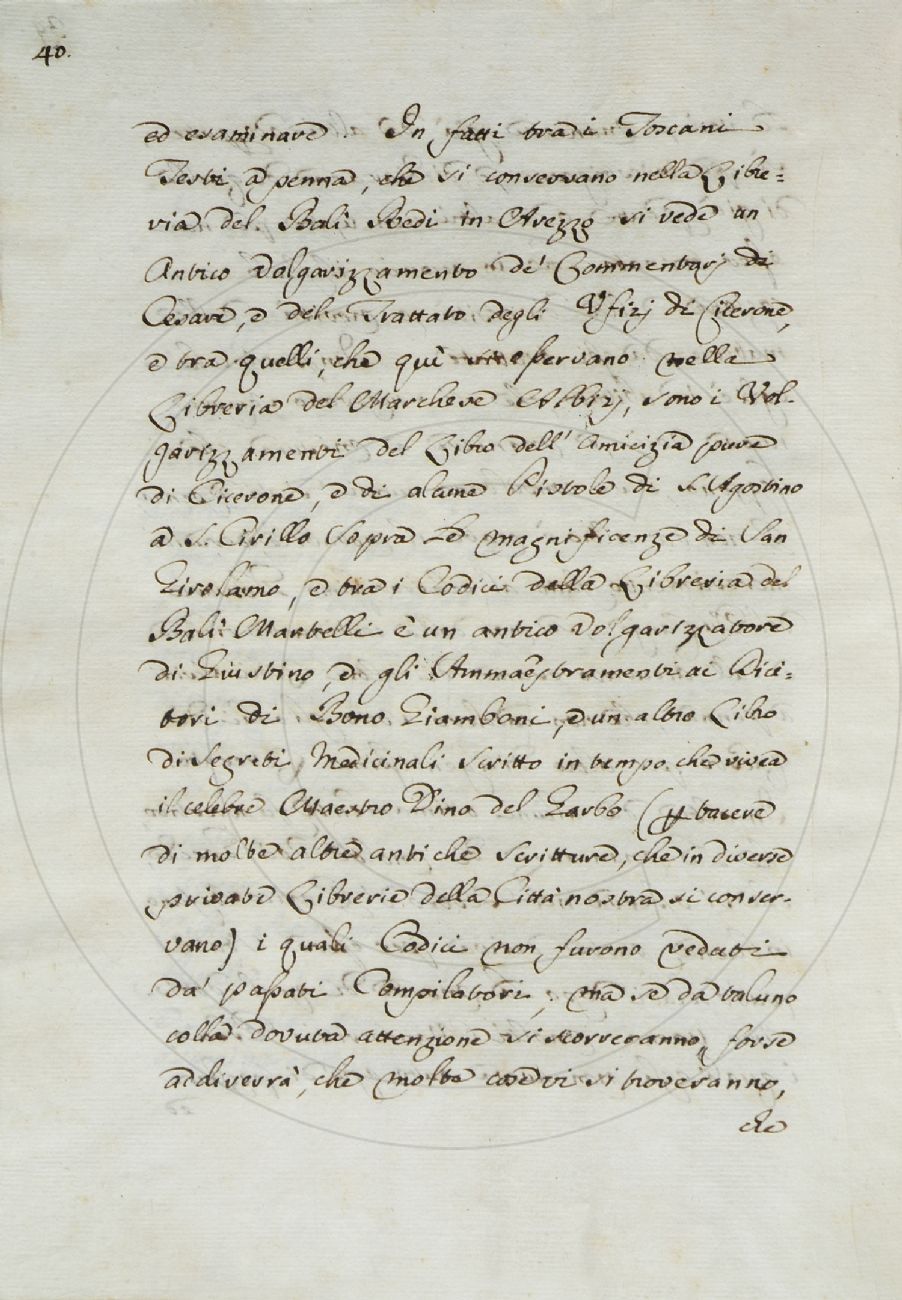 40.
ed esaminare. In fatti tra i Toscani
Testi, a penna, che si conservano nella Libre=
ria del Balì Redi in Arezzo si vede un
Antico Volgarizzamento de' Commentarj di
Cesare, e del Trattato degli Ufizj di Cicerone,
e tra quelli, che quì si osservano nella
Libreria del Marchese Albizj, sono i Vol-
garizzamenti del Libro dell' Amicizia pure
di Cicerone, e di alcune Pistole di S. Agostino
a S. Cirillo sopra le magnificenze di San
Girolamo, e tra i Codici della Libreria del
Balì Martelli è un antico Volgarizzatore
di Giustino, e gli Ammaestramenti ai Dici-
tori di Bono Giamboni, e un altro Libro
di Segreti Medicinali scritto in tempo che vivea
il celebre Maestro Dino del Garbo (p tacere
di molte altre antiche scritture, che in diverse
private Librerie della Città nostra si conser-
vano) i quali Codici non furono veduti
da' passati Compilatori; ma se da taluno
colla dovuta attenzione si scorreranno, forse
addiverrà, che molte cose vi si troveranno,
che